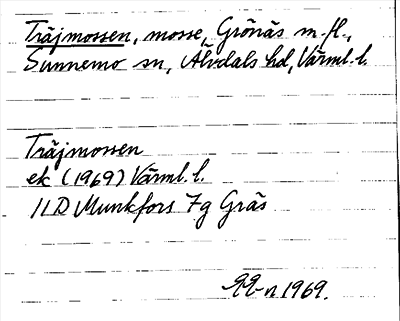 Träjmossen, mosse, Grönäs m.fl.,
Sunnemo sn, Älvdals hd, Värml. l.
Träjmossen
ek (1969) Värml. l.
11D Munkfors 7g Gräs
n 1969.